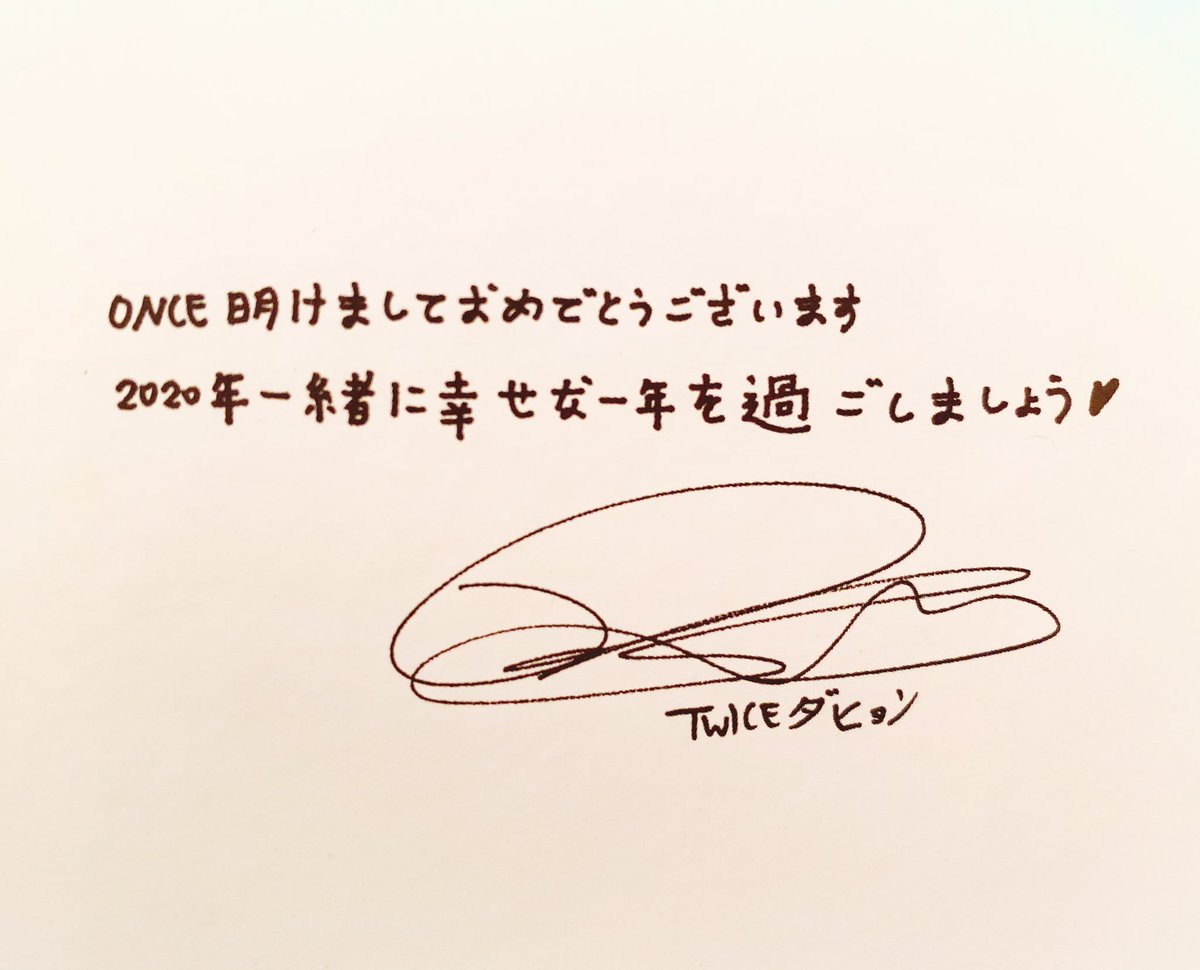 ONCE 明けましておめでとうございます
2020年一緒に幸せな一年を過ごしましょう♥
TWICEダヒョン